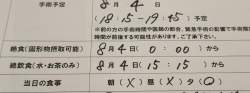 手術予定 8月4日
(18:15~19:45)予定
※前の方の手術時間や医師の都合、緊急手術の影響で手術時間
時間が前後する可能性があります。ご了承下さい。
絶食(固形物摂取可能) 8月4日 0:00 から
絶飲食(水・お茶のみ) 8月4日 : から
当日の食事 朝(×)昼(×)夕(○)